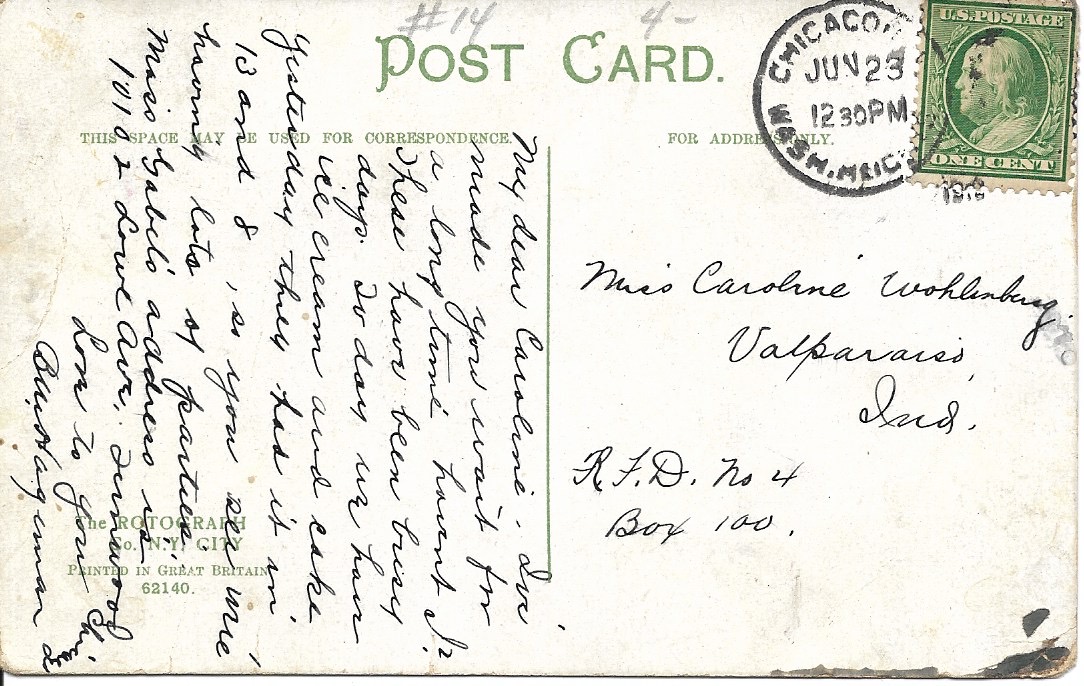 #14
4-
POST CARD.
THIS SPACE MAY BE USED FOR CORRESPONDENCE.
FOR ADDRESS ONLY.
CHICAGO
JUN 23
1230PM
U.S. POSTAGE
ONE CENT
My dear Caroline. I've
made you wait for
a long time havent I?
These have been busy
days. To day we have
ice cream and cake
yesterday they had it in
13 and 8, so you see we're
having lots of parties.
Miss Gabel's address is
10102 Lowe Ave. Fernwood
Love to you
B.M. Hageman
Miss Caroline Wohlenburg.
Valparaiso,
Ind.
R.F.D. No 4
Box 100.
The ROTOGRAPH
Co. N.Y. CITY
PRINTED IN GREAT BRITAIN
62140.